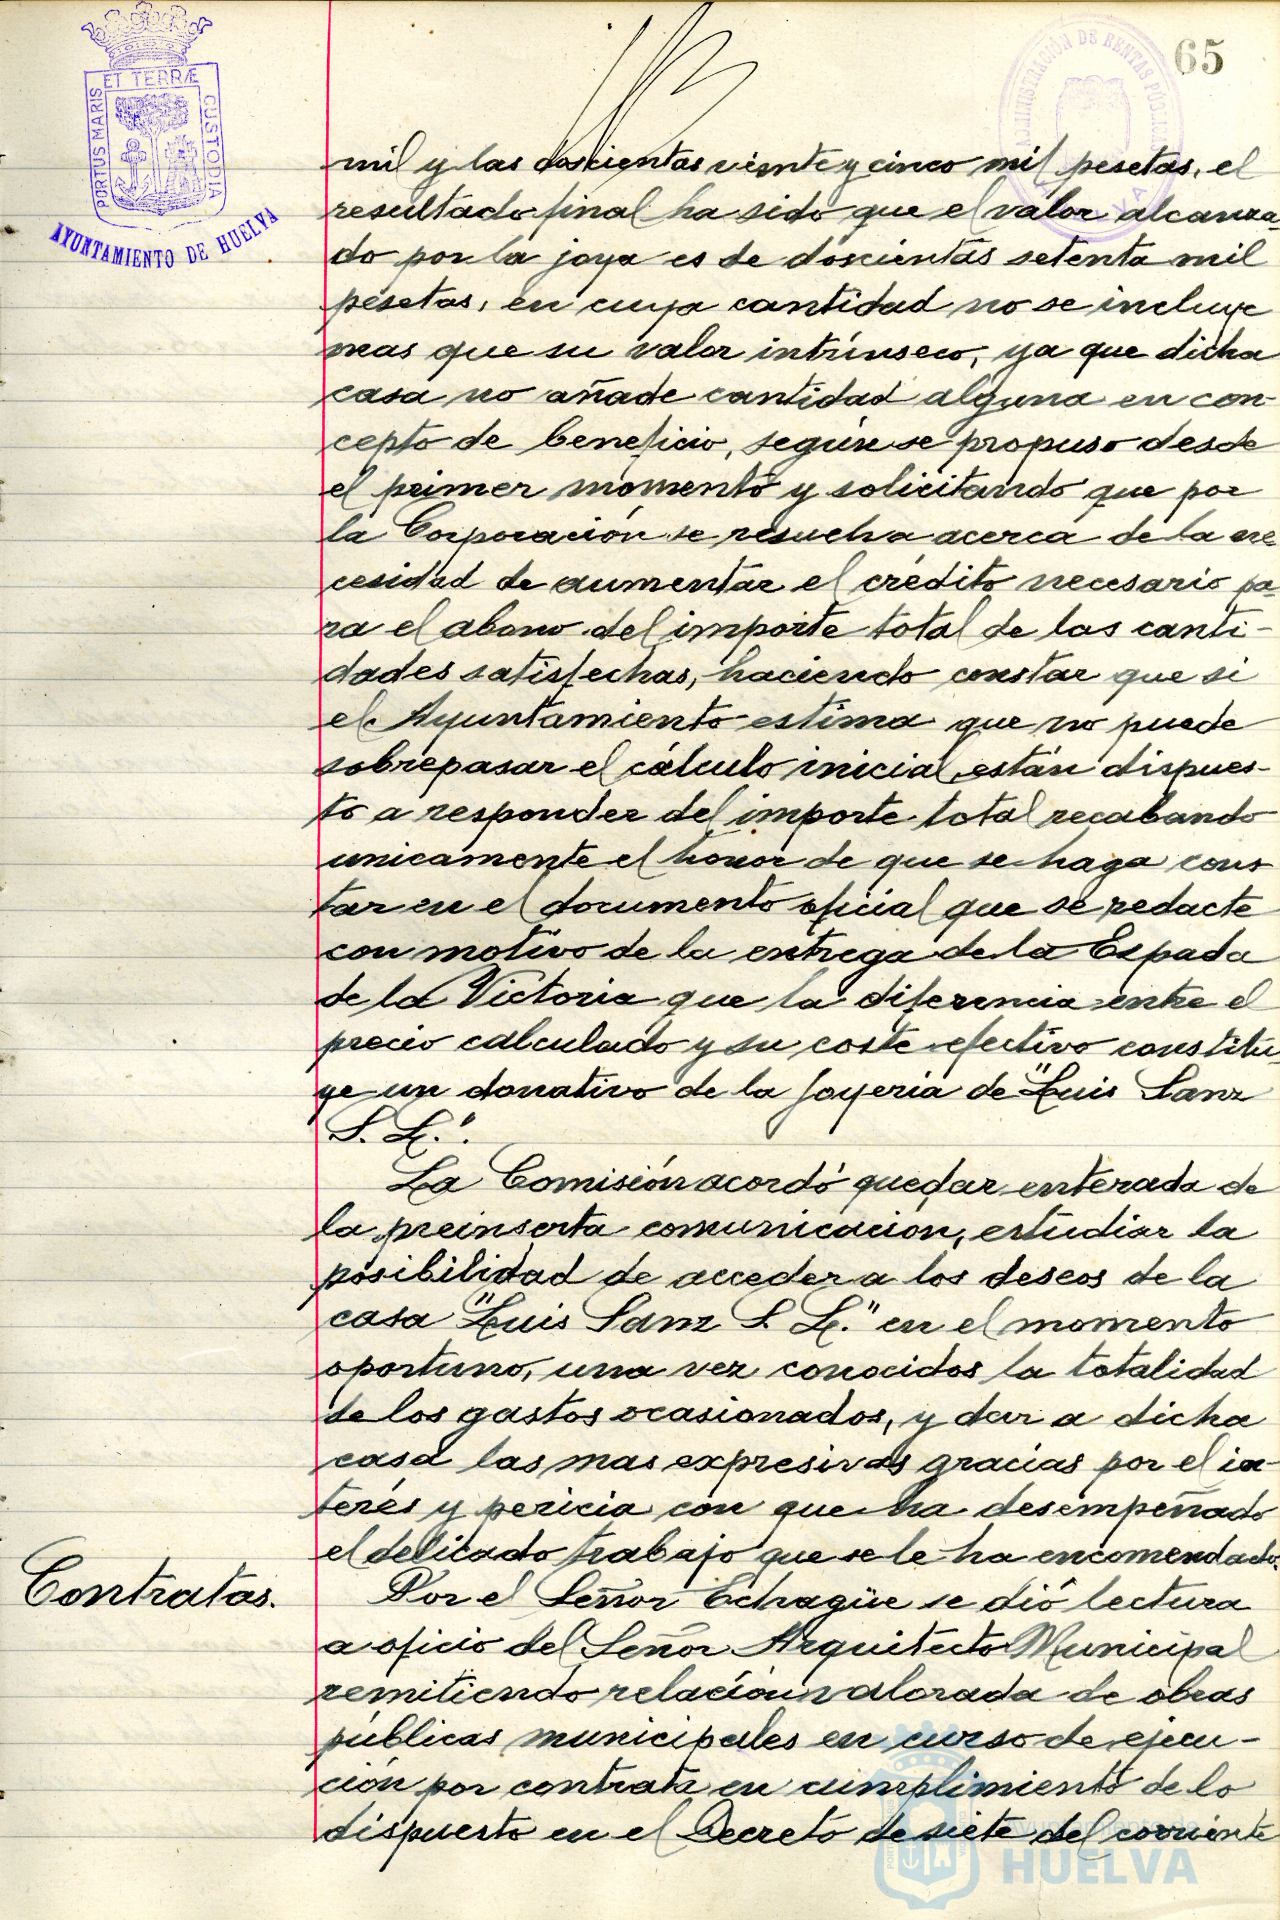 65
PORTUS MARIS ET TERRÆ CUSTODIA
AYUNTAMIENTO DE HUELVA
ADMINISTRACIÓN DE RENTAS PÚBLICAS
mil y las doscientas veinte y cinco mil pesetas, el
resultado final ha sido que el valor alcanza-
do por la joya es de doscientas setenta mil
pesetas, en cuya cantidad no se incluye
mas que su valor intrínseco, ya que dicha
casa no añade cantidad alguna en con-
cepto de beneficio, según se propuso desde
el primer momento y solicitando que por
la Corporación se resuelva acerca de la ne
cesidad de aumentar el crédito necesario pa-
ra el abono del importe total de las canti-
dades satisfechas, haciendo constar que si
el Ayuntamiento estima que no puede
sobrepasar el cálculo inicial, están dispues-
to a responder del importe total recabando
unicamente el honor de que se haga cons
tar en el documento oficial que se redacte
con motivo de la entrega de la Espada
de la Victoria que la diferencia entre el
precio calculado y su coste efectivo constitu-
ye un donativo de la Joyeria de "Luis Sanz
S. L.".
La Comisión acordó quedar enterada de
la preinserta comunicacion, estudiar la
posibilidad de acceder a los deseos de la
casa "Luis Sanz S. L." en el momento
oportuno, una vez conocidos la totalidad
de los gastos ocasionados, y dar a dicha
casa las mas expresivas gracias por el in-
terés y pericia con que ha desempeñado
el delicado trabajo que se le ha encomendado.
Contratas.
Por el Señor Echagüe se dió lectura
a oficio del Señor Arquitecto Municipal
remitiendo relación valorada de obras
públicas municipales en curso de ejecu-
ción por contrata en cumplimiento de lo
dispuesto en el Decreto de siete del corriente
Ayuntamiento de
HUELVA